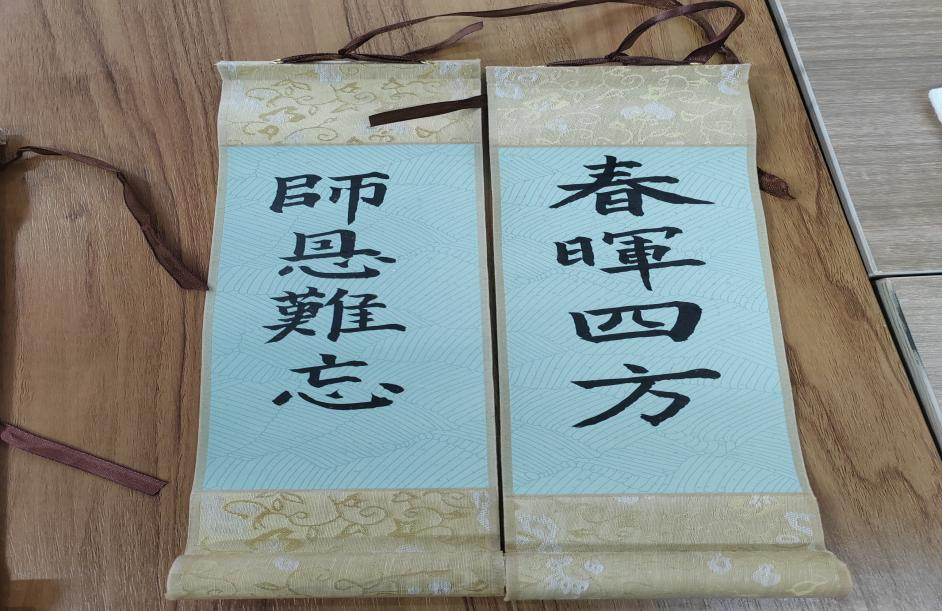 春暉四方
師恩難忘